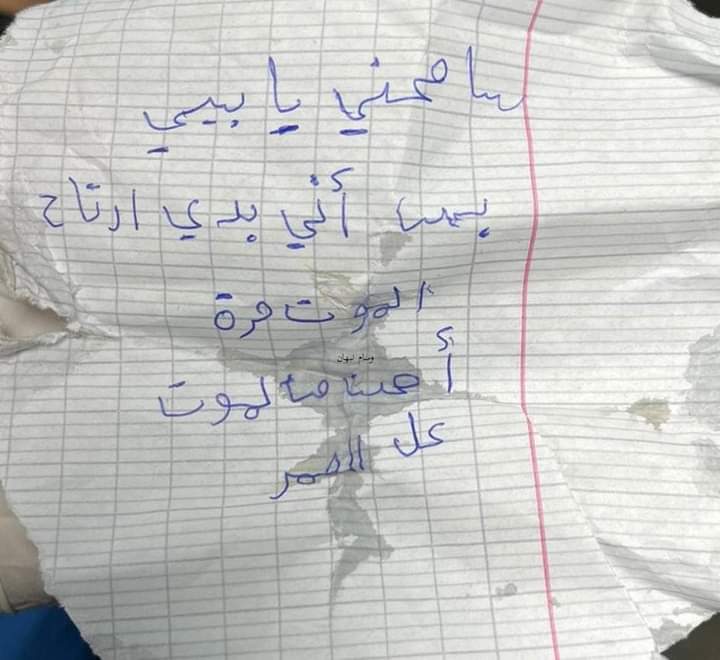 سامحني يا بيي
بس أني بدي ارتاح
الموت مرة
وسام نبهان
أحسن ما موت
كل العمر